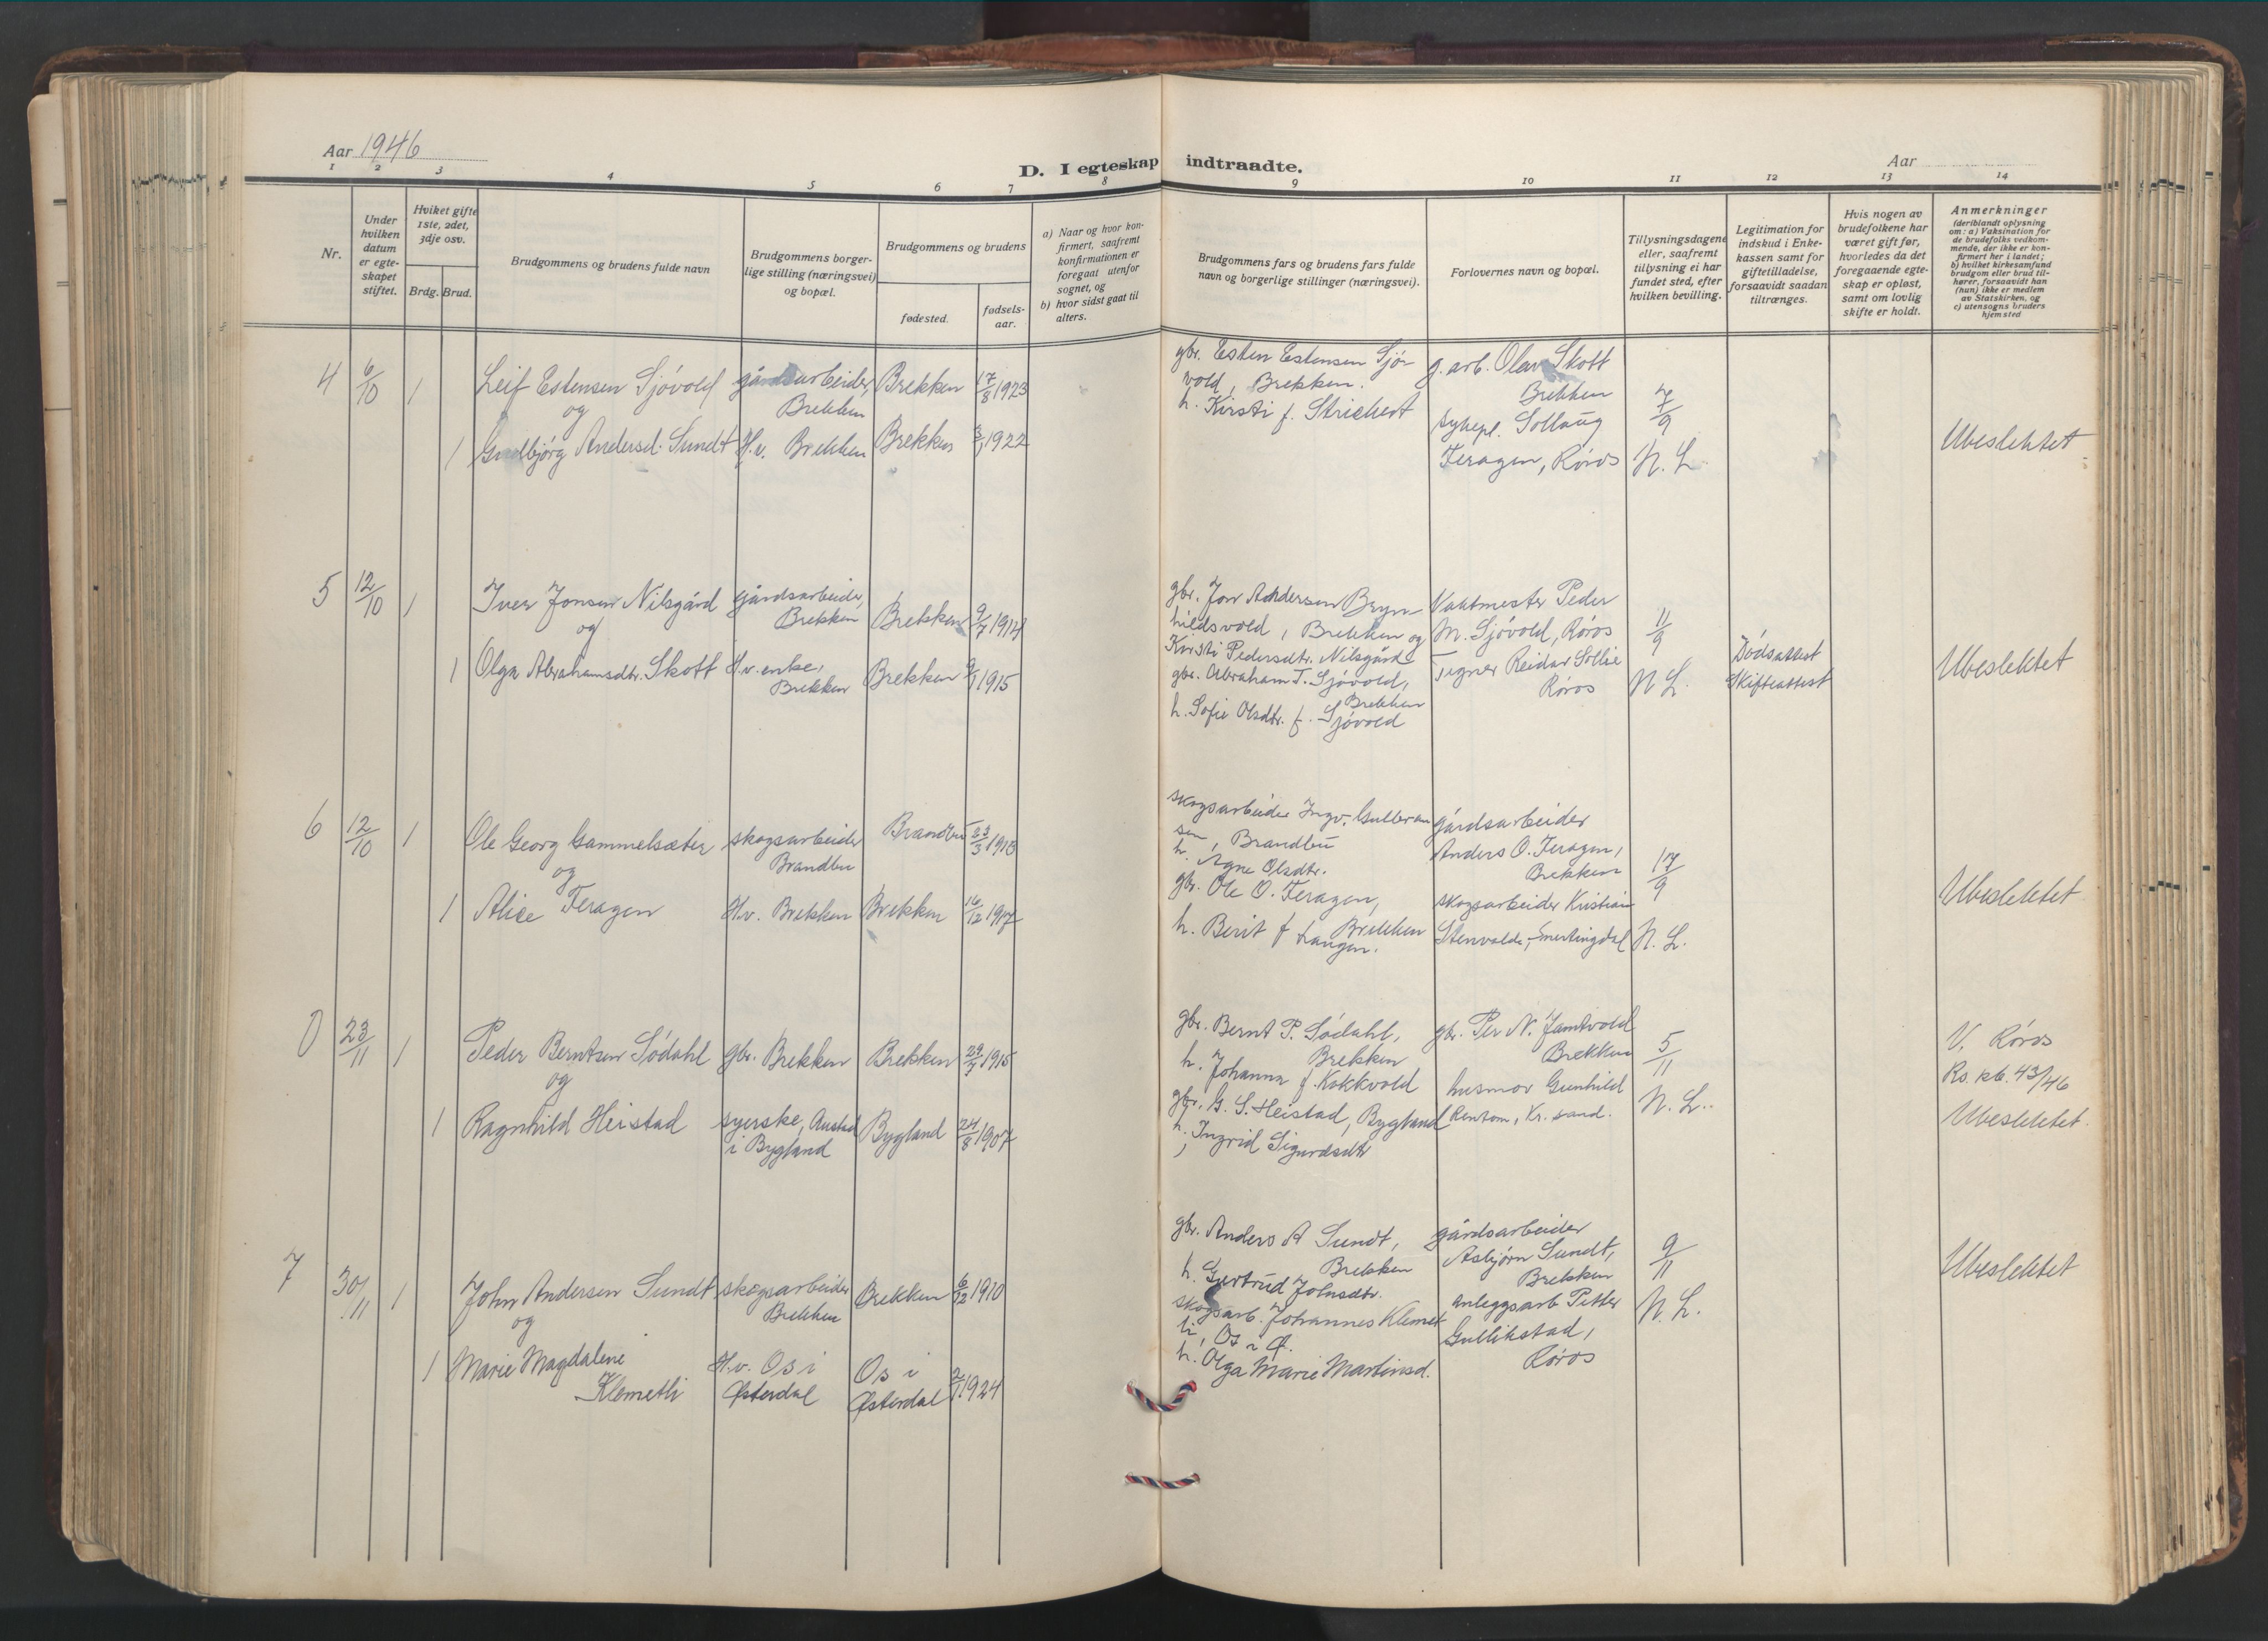 Aar 1946
D. I egteskap indtraadte.
Aar
1 2 3 4 5 6 7 8 9 10 11 12 13 14
Nr.
Under
hvilken
datum
er egte-
skapet
stiftet.
Hviket gifte
1ste, 2det,
3dje osv.
Brdg. Brud.
Brudgommens og brudens fulde navn
Brudgommens borger-
lige stilling (næringsvei)
og bopæl.
Brudgommens og brudens
fødested.
fødsels-
aar.
a) Naar og hvor kon-
firmert, saafremt
konfirmationen er
foregaat utenfor
sognet, og
b) hvor sidst gaat til
alters.
Brudgommens fars og brudens fars fulde
navn og borgerlige stillinger (næringsvei).
Forlovernes navn og bopæl.
Tillysningsdagene
eller, saafremt
tillysning ei har
fundet sted, efter
hvilken bevilling.
Legitimation for
indskud i Enke-
kassen samt for
giftetilladelse,
forsaavidt saadan
tiltrænges.
Hvis nogen av
brudefolkene har
været gift før,
hvorledes da det
foregaaende egte-
skap er opløst,
samt om lovlig
skifte er holdt.
Anmerkninger
(deriblandt oplysning
om: a) Vaksination for
de brudefolks vedkom-
mende, der ikke er kon-
firmert her i landet;
b) hvilket kirkesamfund
brudgom eller brud til-
hører, forsaavidt han
(hun) ikke er medlem
av Statskirken, og
c) utensogns bruders
hjemsted
4 6/10 1 Leif Estensen Sjövold gårdsarbeider, Brekken 17/8 1923
og Brekken
1 Gudbjørg Andersd. Sundt H.v. Brekken Brekken 1922
gbr. Esten Estensen Sjö-
vold, Brekken.
h. Kirsti f. Strickert
g. arb. Olav Skott
Brekken
sykepl. Sollaug
Feragen, Røros
7/9
N. L.
Ubeslektet
5 12/10 1 Iver Jonsen Nilsgård gårdsarbeider, Brekken 9/7 1914
og Brekken
1 Olga Abrahamsdtr. Skott H.v. enke, Brekken 1915
Brekken
gbr. Jon Andersen Bryn-
hildsvold, Brekken og
Kirsti Pedersdtr. Nilsgård
gbr. Abraham T. Sjövold,
Brekken
h. Sofie Olsdtr. f. Sjövold
Vaktmester Peder
M. Sjövold, Røros
Tegner Reidar Sollie
Røros
11/9
N L.
Dödsattest
Skifteattest
Ubeslektet
6 12/10 1 Ole Georg Gammelsæter skogsarbeider Brandbu 23/3 1913
og Brandbu
1 Alice Feragen H.v. Brekken Brekken 16/12 1907
skogsarbeider Ingv. Gulbran
sen, Brandbu
h. Agne Olsdtr.
gbr. Ole O. Feragen,
Brekken
h. Berit f Langen.
gårdsarbeider
Anders O. Feragen,
Brekken
skogsarbeider Kristian
Stenvolde, Snertingdal
17/9
N. L.
Ubeslektet
0 23/11 1 Peder Berntsen Södahl gbr. Brekken Brekken 29/7 1915
og
1 Ragnhild Heistad syerske, Austad Bygland 24/8 1907
i Bygland
gbr. Bernt P. Södahl,
Brekken
h. Johanna f. Kokkvold
gbr. G. S. Heistad, Bygland
h. Ingrid Sigurdsdtr
gbr. Per N. Jamtvold
Brekken
husmor Gunhild
Rentom, Kr. sand.
5/11
N. L.
V. Røros
Ro. kb. 43/46
Ubeslektet.
7 30/11 1 John Andersen Sundt skogsarbeider Brekken 6/12 1910
og Brekken
1 Marie Magdalene H.v. Os i Os i
Klemetli Østerdal Østerdal 1924
gbr. Anders A Sundt,
Brekken
h. Gjertrud Johnsdtr.
skogsarb. Johannes Klemet
li, Os i Ø.
h. Olga Marie Martinsd.
gårdsarbeider
Asbjørn Sundt,
Brekken
anleggsarb Petter
Gullikstad,
Røros
9/11
N. L.
Ubeslektet